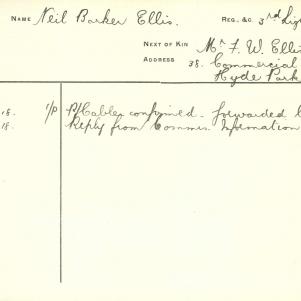 NAME Neil Barker Ellis. REG. &C. 3rd Lig
NEXT OF KIN Mr F. W. Elli
ADDRESS 38. Commercial
Hyde Park
18. 1/P P/Cables confirmed. Forwarded
18. Reply from Commis. Information